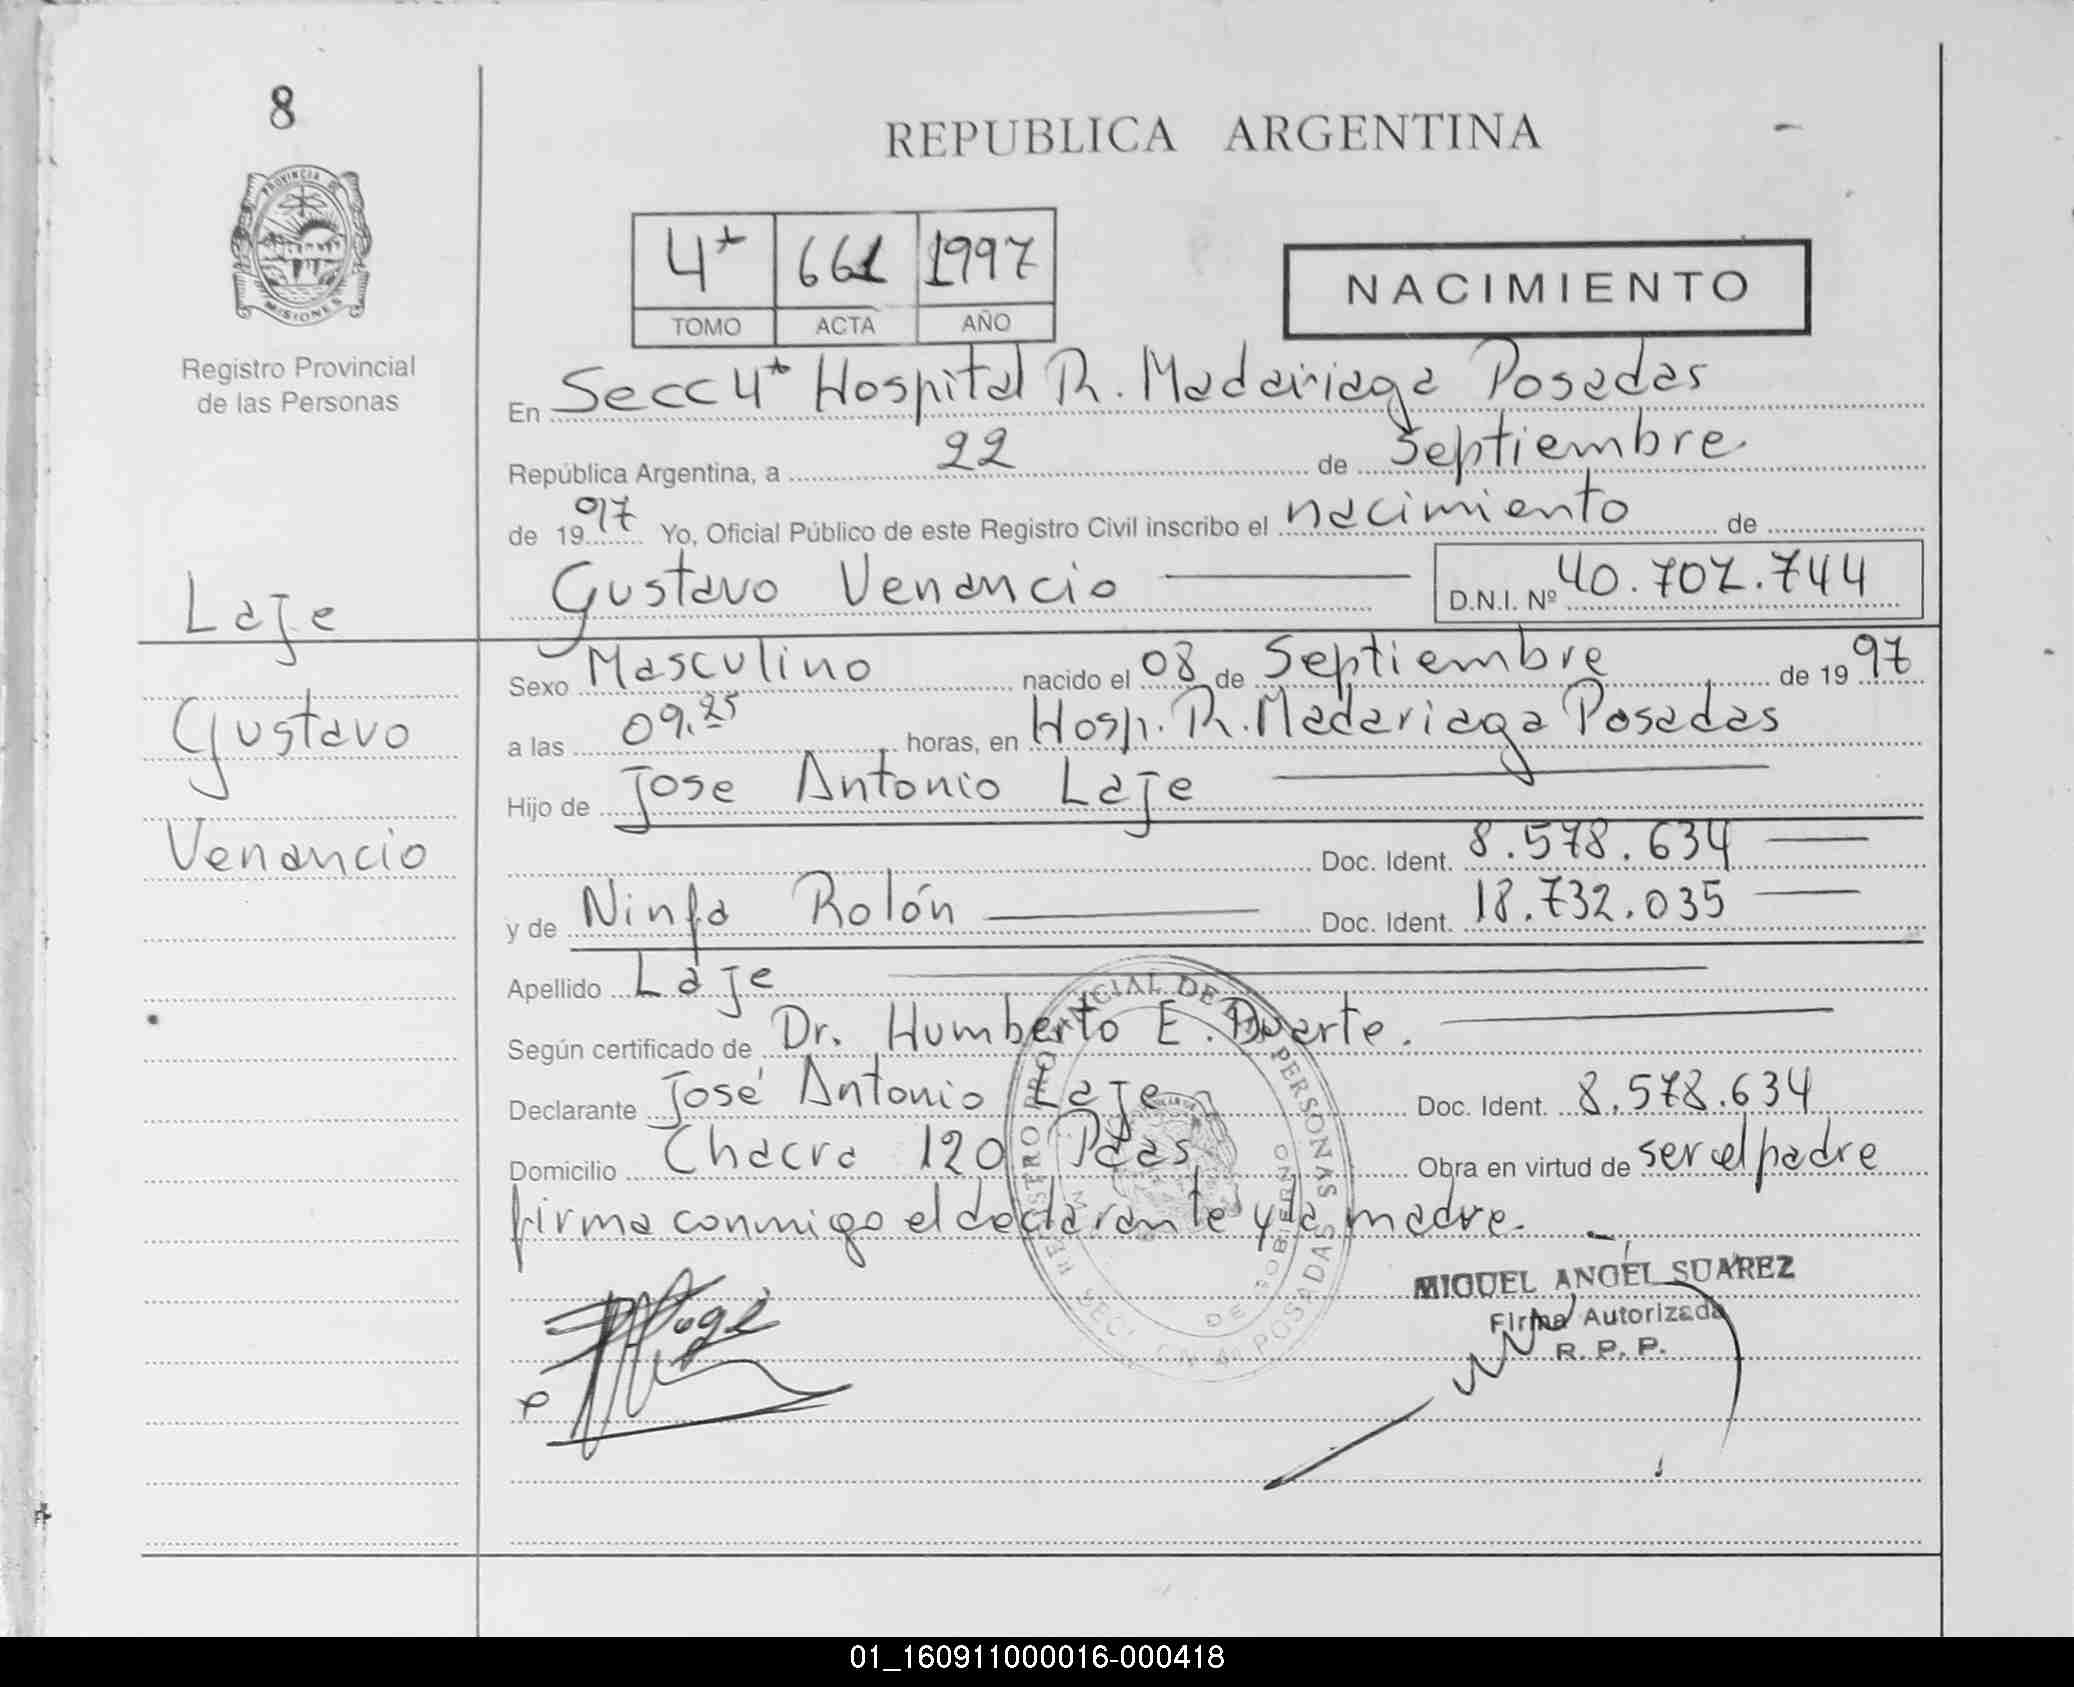 8
PROVINCIA DE
MISIONES
Registro Provincial
de las Personas
REPUBLICA ARGENTINA
4ª 661 1997
TOMO ACTA AÑO
NACIMIENTO
En Secc 4ª Hospital R. Madariaga Posadas
República Argentina, a 22 de Septiembre
de 1997 Yo, Oficial Público de este Registro Civil inscribo el nacimiento de
Gustavo Venancio D.N.I. Nº 40.707.744
Laje
Gustavo
Venancio
Sexo Masculino nacido el 08 de Septiembre de 1997
a las 09.25 horas, en Hosp. R. Madariaga Posadas
Hijo de Jose Antonio Laje
Doc. Ident. 8.578.634
y de Ninfa Rolón Doc. Ident. 18.732.035
Apellido Laje
Según certificado de Dr. Humberto E. Duarte.
Declarante José Antonio Laje Doc. Ident. 8.578.634
Domicilio Chacra 120 Pdas Obra en virtud de ser el padre
firma conmigo el declarante y la madre.
REGISTRO PROVINCIAL DE LAS PERSONAS
DE GOBIERNO
POSADAS
MIGUEL ANGEL SUAREZ
Firma Autorizada
R. P. P.
01_160911000016-000418